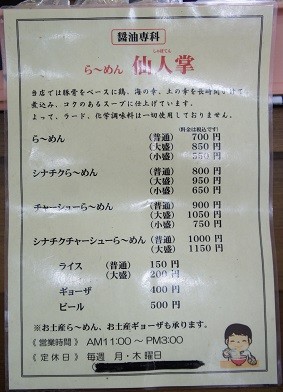 醤油専科
しゃぼてん
ら〜めん 仙人掌
当店では豚骨をベースに鶏、海の幸、土の幸を長時間かけて
煮込み、コクのあるスープに仕上げています。
よって、ラード、化学調味料は一切使用しておりません。
(料金は税込です)
ら〜めん (普通) 700 円
(大盛) 850 円
(小盛) 550 円
シナチクら〜めん (普通) 800 円
(大盛) 950 円
(小盛) 650 円
チャーシューら〜めん (普通) 900 円
(大盛) 1050 円
(小盛) 750 円
シナチクチャーシューら〜めん (普通) 1000 円
(大盛) 1150 円
ライス (普通) 150 円
(大盛) 200 円
ギョーザ 400 円
ビール 500 円
※お土産ら〜めん、お土産ギョーザも承ります。
《 営業時間 》 AM11:00 〜 PM3:00
《 定休日 》 毎週 月・木曜日